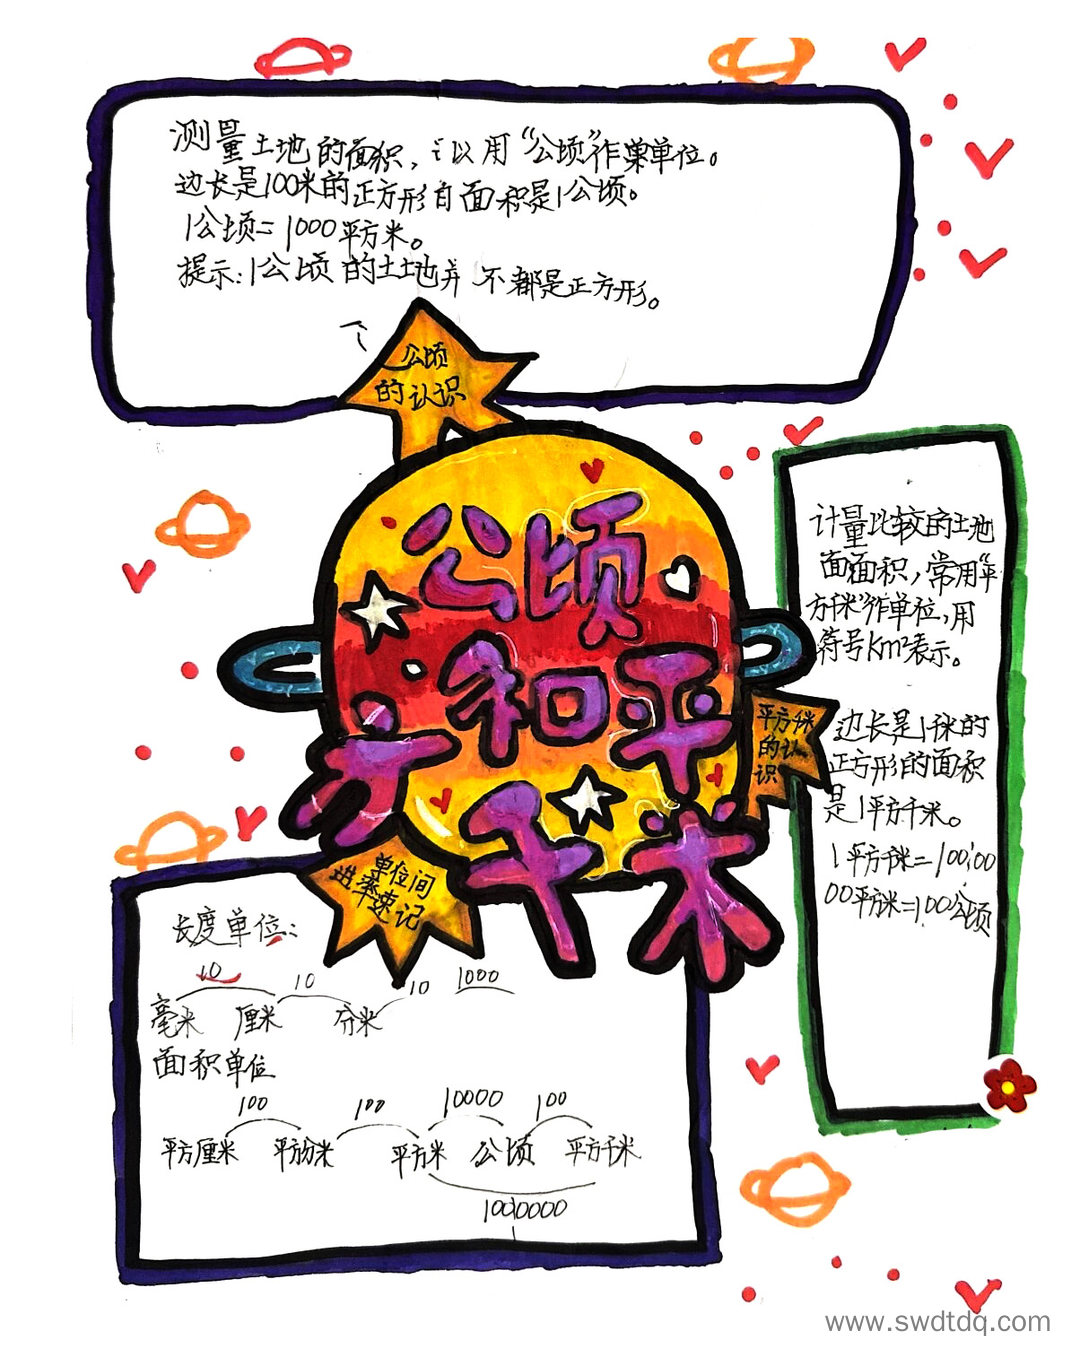 测量土地的面积，可以用“公顷”作单位。
边长是100米的正方形的面积是1公顷。
1公顷=1000平方米。
提示:1公顷的土地并不都是正方形。
公顷
的认识
公顷
和平
方
千米
计量比较的土地
面面积，常用“平
方千米”作单位，用
符号km²表示。
平方千米
的认
识
边长是1千米的
正方形的面积
是1平方千米。
1平方千米=100,00
00平方米=100公顷
单位间
进率速记
长度单位:
10 10 10 1000
毫米 厘米 分米
面积单位
100 100 10000 100
平方厘米 平方分米 平方米 公顷 平方千米
1000000
www.swdtdq.com